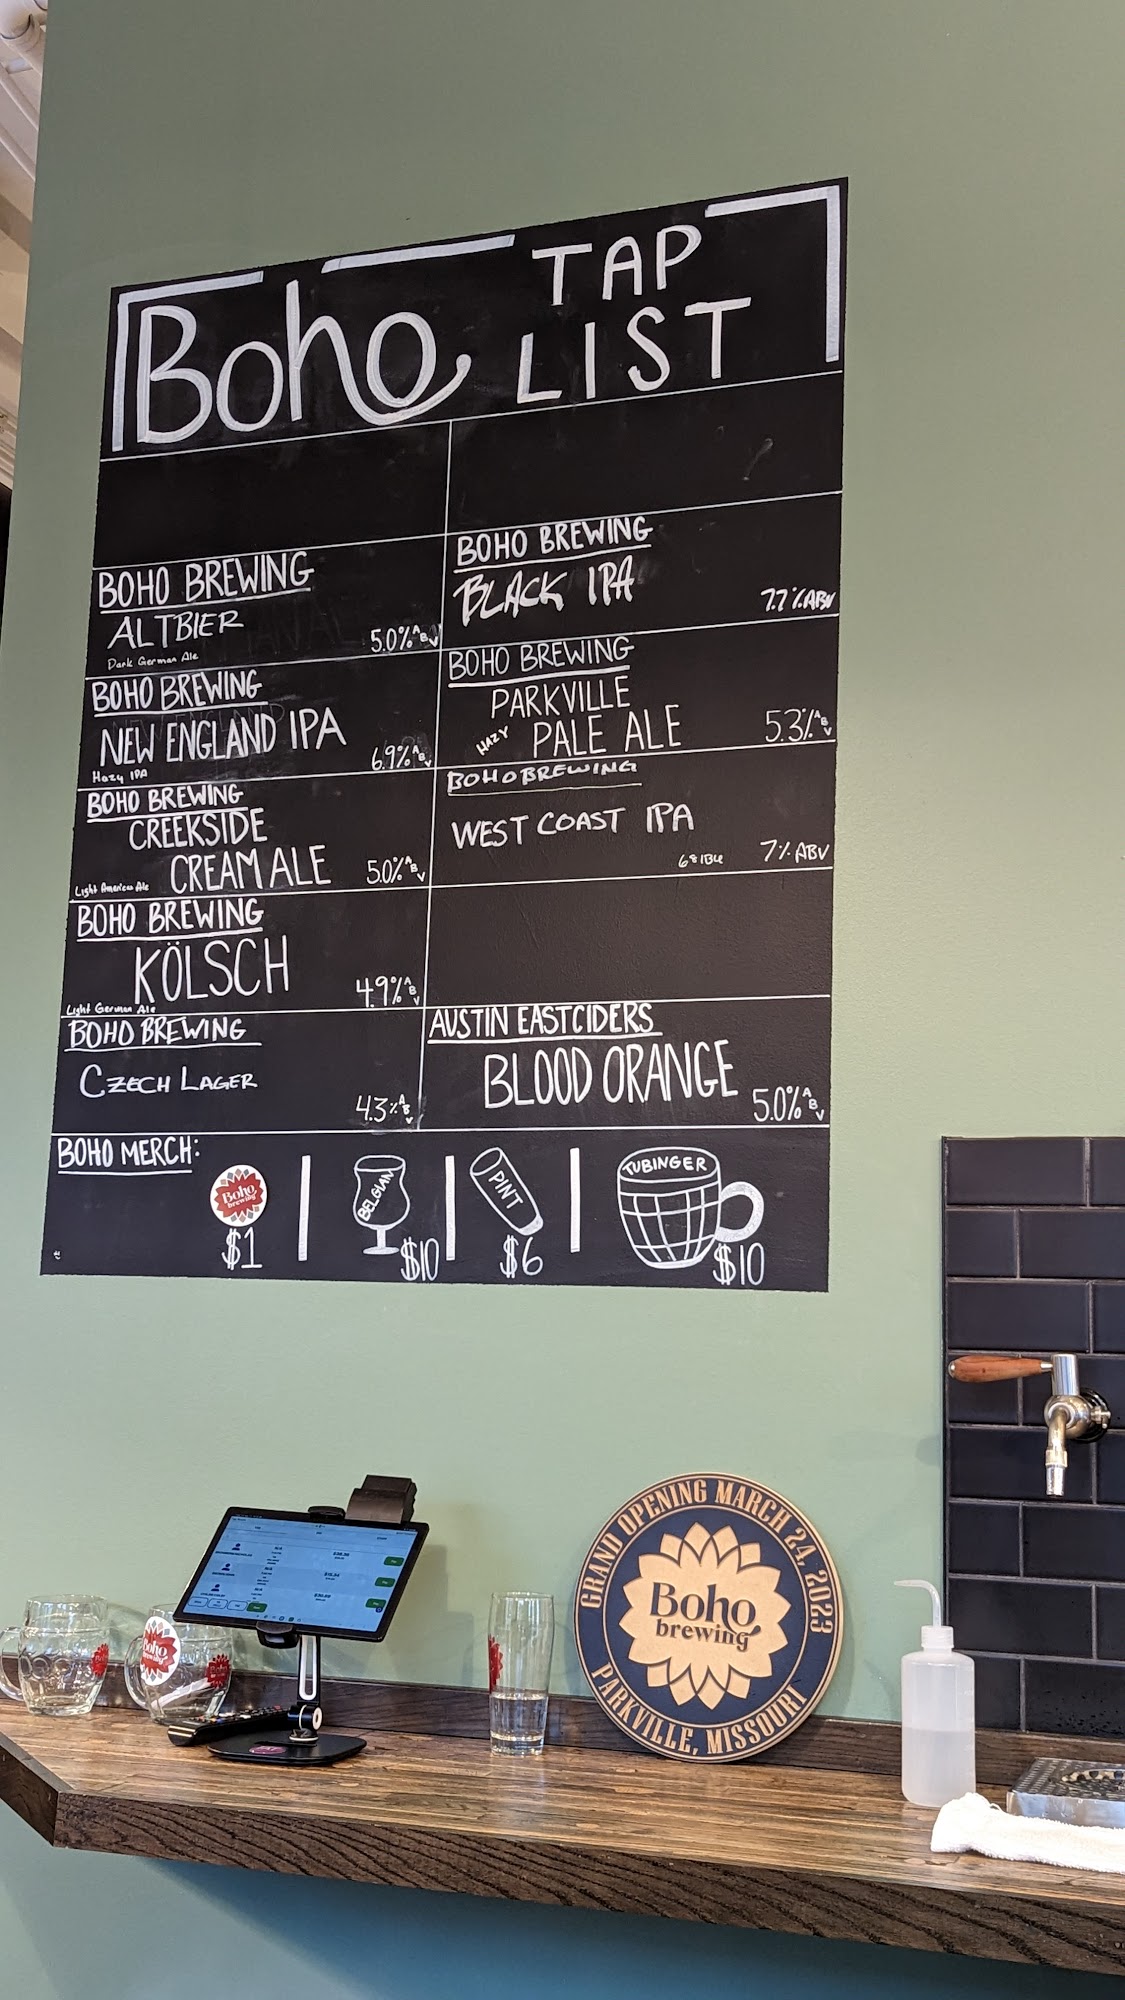 Boho
TAP
LIST
BOHO BREWING
ALTBIER
5.0% ABV
Dark German Ale
BOHO BREWING
NEW ENGLAND IPA
6.9% ABV
Hazy IPA
BOHO BREWING
CREEKSIDE
CREAM ALE
5.0% ABV
Light American Ale
BOHO BREWING
KÖLSCH
4.9% ABV
Light German Ale
BOHO BREWING
CZECH LAGER
4.3% ABV
BOHO BREWING
BLACK IPA
7.7% ABV
BOHO BREWING
PARKVILLE
HAZY PALE ALE
5.3% ABV
BOHO BREWING
WEST COAST IPA
68 IBU 7% ABV
AUSTIN EASTCIDERS
BLOOD ORANGE
5.0% ABV
BOHO MERCH:
Boho
brewing
$1
BELGIAN
$10
PINT
$6
TUBINGER
$10
GRAND OPENING MARCH 24, 2023
Boho
brewing
PARKVILLE, MISSOURI
Boho
brewing